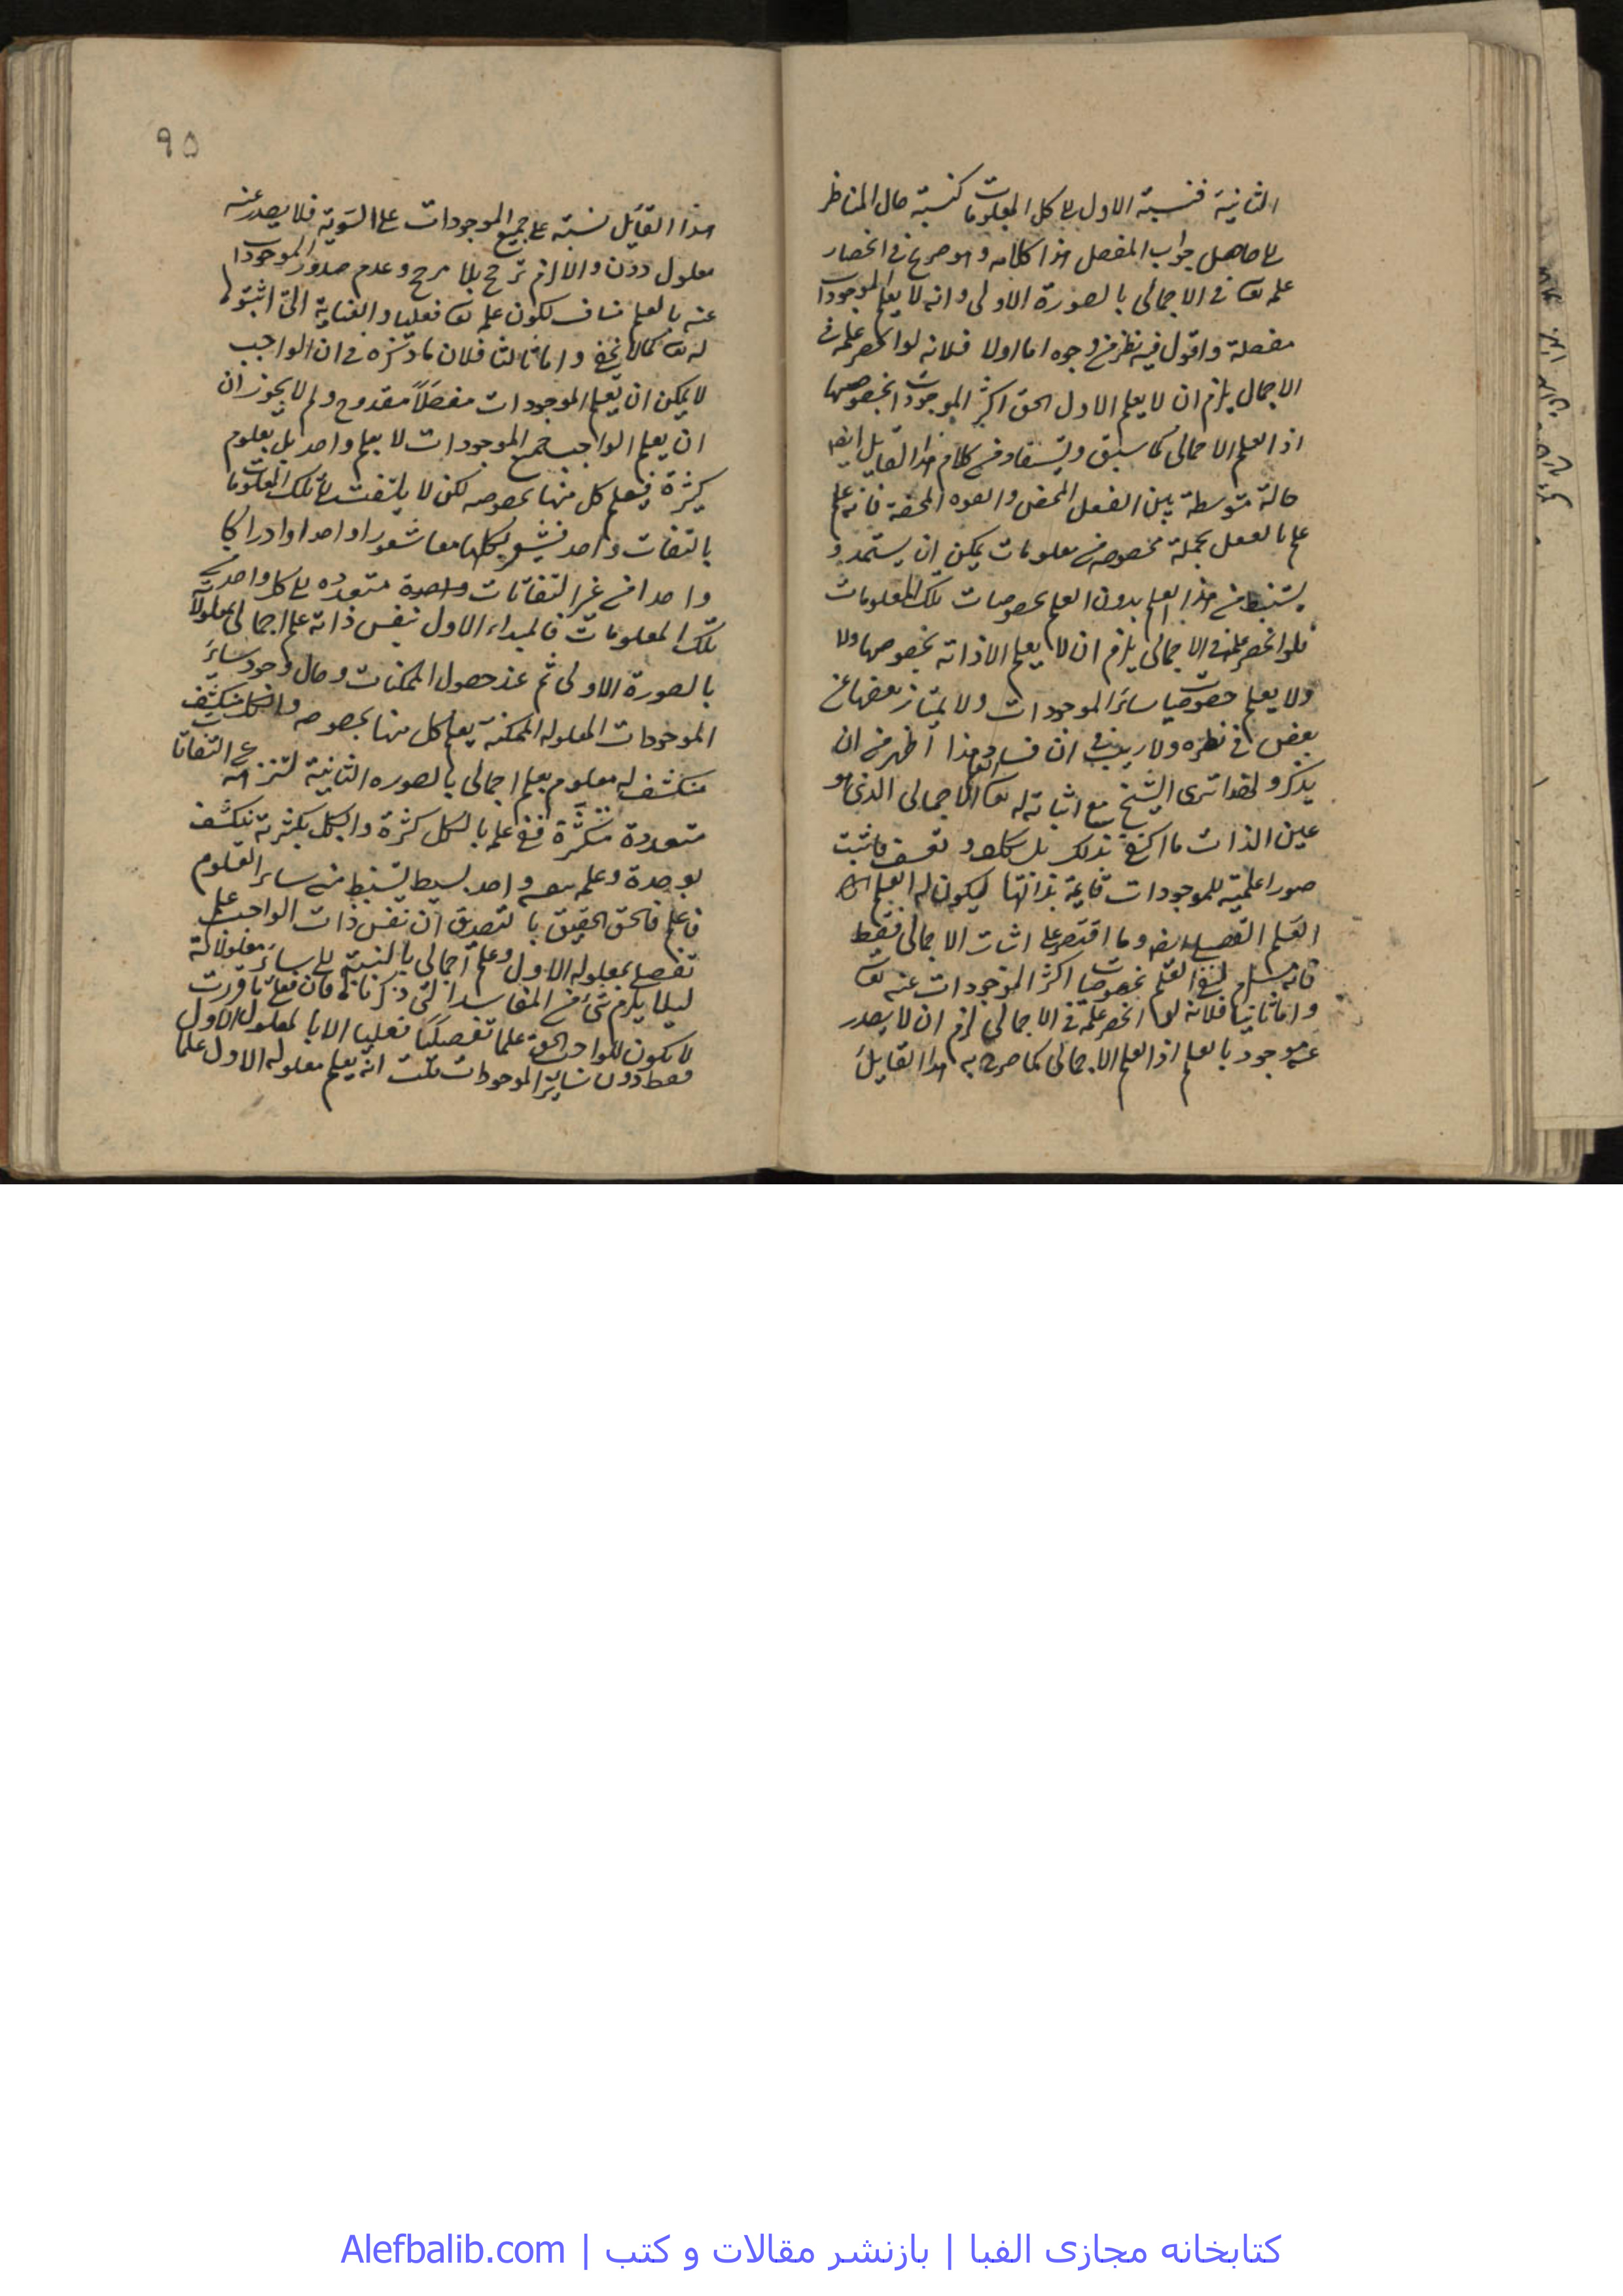 الثانية فنسبة الاول الى كل المعلومات كنسبة حال المناظر
الى حاصل جواب المفصل هذا كلامه وهو صريح فى انحصار
علمه تع فى الاجمالى بالصورة الاولى وانه لا يعلم الموجودات
مفصلة واقول فيه نظر من وجوه اما اولا فلانه لو انحصر علمه فى
الاجمال يلزم ان لا يعلم الاول الحق اكثر الموجودات بخصوصها
اذ العلم الاجمالى كما سبق ويستفاد من كلام هذا القايل ايض
حالة متوسطة بين الفعل المحض والقوه المحضة فانه علم
علم بالفعل بجملة مخصوصة من معلومات يمكن ان يستمد و
يستنبط من هذا العلم بدون العلم بخصوصيات تلك المعلومات
فلو انحصر علمه فى الاجمالى يلزم ان لا يعلم الا ذاته بخصوصها ولا
ولا يعلم خصوصيات سائر الموجودات ولا يمتاز بعضها عن
بعض فى نظره ولا ريب فى ان فساد هذا اظهر من ان
يذكر ولهذا ترى الشيخ مع اثباته له تع العلم الاجمالى الذى هو
عين الذات ما اكتفى بذلك بل تكلف و تعسف فاثبت
صورا علمية للموجودات قايمة بذاتها ليكون له العلم
العلم التفصيلى ايض وما اقتصر على اثبات الاجمالى فقط
فانه يستلزم نفى العلم بخصوصيات اكثر الموجودات عنه تع
واما ثانيا فلانه لو انحصر علمه فى الاجمالى لزم ان لا يصدر
عنه موجود بالعلم اذ العلم الاجمالى كما صرح به هذا القايل
٩٥
هذا القايل نسبته على جميع الموجودات على السوية فلا يصدر عنه
معلول دون والا لزم ترجح بلا مرجح وعدم صدور الموجودات
عنه بالعلم مناف لكون علمه تع فعليا والعناية التى اثبتوه
له تع كما لا يخفى واما ثالثا فلان ما ذكره فى ان الواجب
لا يمكن ان يعلم الموجودات مفصلا مقدوح ولم لا يجوز ان
ان يعلم الواجب جميع الموجودات لا بعلم واحد بل بعلوم
كثيرة فيعلم كل منها بخصوصه لكن لا يلتفت الى تلك المعلومات
بالتفات واحد فيشعر بكلها معا شعورا واحدا وادراكا
واحدا من غير التفاتات واحدة متعدده الى كل واحد من
تلك المعلومات فالمبداء الاول بنفس ذاته علم اجمالى لمعلولاته
بالصورة الاولى ثم عند حصول الممكنات وحال وجود سائر
الموجودات المعلولة الممكنة يعلم كل منها بخصوصه والكل منكشف
منكشف له معلوم بعلم اجمالى بالصوره الثانية لتنزهه عن التفاتات
متعددة متكثرة ففى علمه بالكل كثرة والكل بكثرته ينكشف
بوحدة وعلمه بنفسه واحد بسيط يستنبط منه سائر العلوم
فاعلم فالحق الحقيق بالتصديق ان نفس ذات الواجب علم
تفصيلى بمعلوله الاول وعلم اجمالى بالنسبة الى سائر معلولاته
ليلا يلزم شئ من المفاسد التى ذكرنا فان قلت ما قررت
لا يكون للواجب الحق علما تفصيليا فعليا الا بالمعلول الاول
فقط دون سائر الموجودات قلت انه يعلم معلوله الاول علما
کتابخانه مجازی الفبا | بازنشر مقالات و کتب | Alefbalib.com